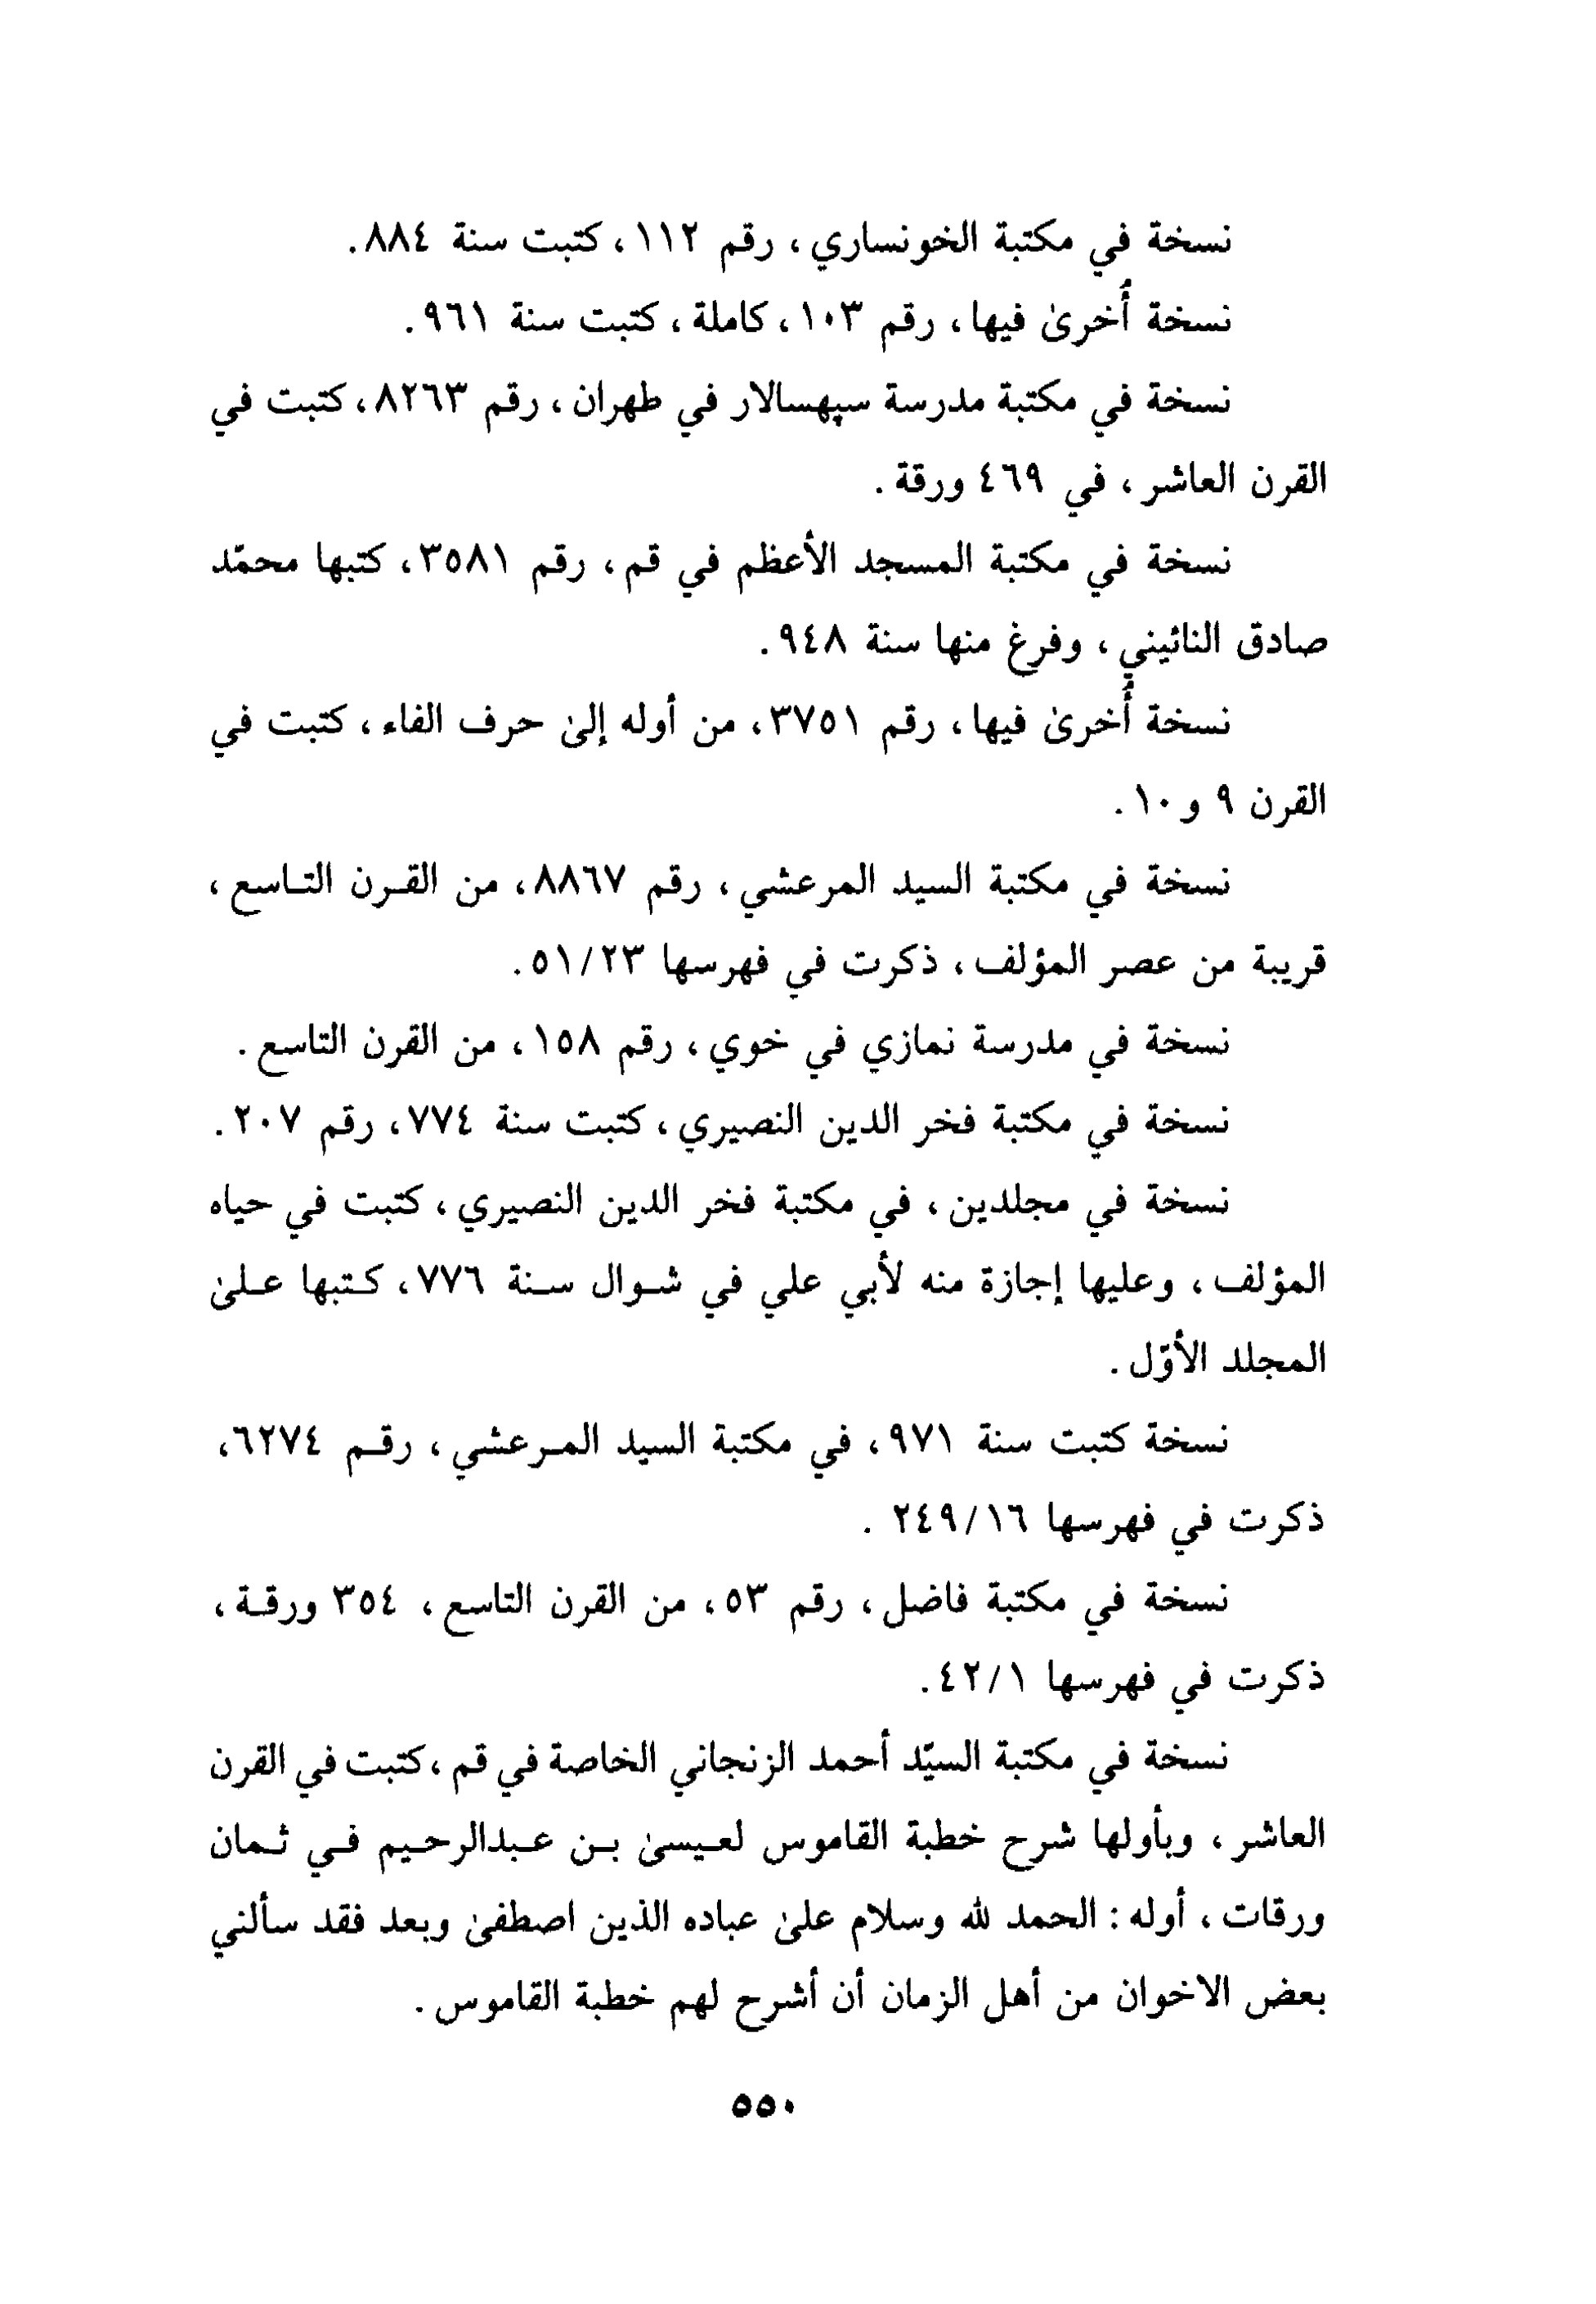 نسخة في مكتبة الخونساري، رقم ١١٢، كتبت سنة ٨٨٤.
نسخة أُخرىٰ فيها، رقم ١٠٣، كاملة، كتبت سنة ٩٦١.
نسخة في مكتبة مدرسة سپهسالار في طهران، رقم ٨٢٦٣، كتبت في
القرن العاشر، في ٤٦٩ ورقة.
نسخة في مكتبة المسجد الأعظم في قم، رقم ٣٥٨١، كتبها محمّد
صادق النائيني، وفرغ منها سنة ٩٤٨.
نسخة أُخرىٰ فيها، رقم ٣٧٥١، من أوله إلىٰ حرف الفاء، كتبت في
القرن ٩ و ١٠.
نسخة في مكتبة السيد المرعشي، رقم ٨٨٦٧، من القـرن التـاسع،
قريبة من عصر المؤلف، ذكرت في فهرسها ٥١/٢٣.
نسخة في مدرسة نمازي في خوي، رقم ١٥٨، من القرن التاسع.
نسخة في مكتبة فخر الدين النصيري، كتبت سنة ٧٧٤، رقم ٢٠٧.
نسخة في مجلدين، في مكتبة فخر الدين النصيري، كتبت في حياه
المؤلف، وعليها إجازة منه لأبي علي في شـوال سـنة ٧٧٦، كـتبها عـلىٰ
المجلد الأوّل.
نسخة كتبت سنة ٩٧١، في مكتبة السيد المـرعشي، رقـم ٦٢٧٤،
ذكرت في فهرسها ٢٤٩/١٦ .
نسخة في مكتبة فاضل، رقم ٥٣، من القرن التاسع، ٣٥٤ ورقـة،
ذكرت في فهرسها ٤٢/١.
نسخة في مكتبة السيّد أحمد الزنجاني الخاصة في قم، كتبت في القرن
العاشر، وبأولها شرح خطبة القاموس لعـيسىٰ بـن عـبدالرحـيم فـي ثـمان
ورقات، أوله : الحمد لله وسلام علىٰ عباده الذين اصطفىٰ وبعد فقد سألني
بعض الاخوان من أهل الزمان أن أشرح لهم خطبة القاموس.
٥٥٠